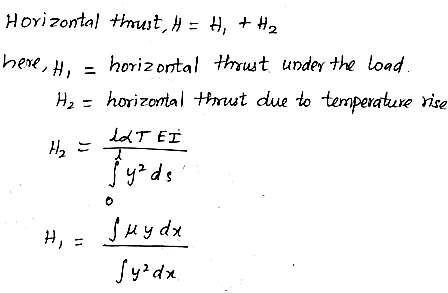 Horizontal thrust, H = H₁ + H₂
here, H₁ = horizontal thrust under the load.
H₂ = horizontal thrust due to temperature rise
H₂ = lαT EI / ∫₀ˡ y² ds
H₁ = ∫ μ y dx / ∫ y² dx